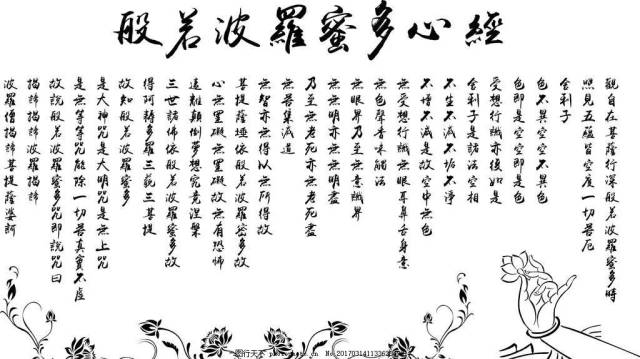 般若波羅蜜多心經
觀自在菩薩行深般若波羅蜜多時
照見五蘊皆空度一切苦厄
舍利子
色不異空空不異色
色即是空空即是色
受想行識亦復如是
舍利子是諸法空相
不生不滅不垢不淨
不增不減是故空中無色
無受想行識無眼耳鼻舌身意
無色聲香味觸法
無眼界乃至無意識界
無無明亦無無明盡
乃至無老死亦無老死盡
無苦集滅道
無智亦無得以無所得故
菩提薩埵依般若波羅蜜多故
心無罣礙無罣礙故無有恐怖
遠離顛倒夢想究竟涅槃
三世諸佛依般若波羅蜜多故
得阿耨多羅三藐三菩提
故知般若波羅蜜多
是大神咒是大明咒是無上咒
是無等等咒能除一切苦真實不虛
故說般若波羅蜜多咒即說咒曰
揭諦揭諦波羅揭諦
波羅僧揭諦菩提薩婆訶
图行天下